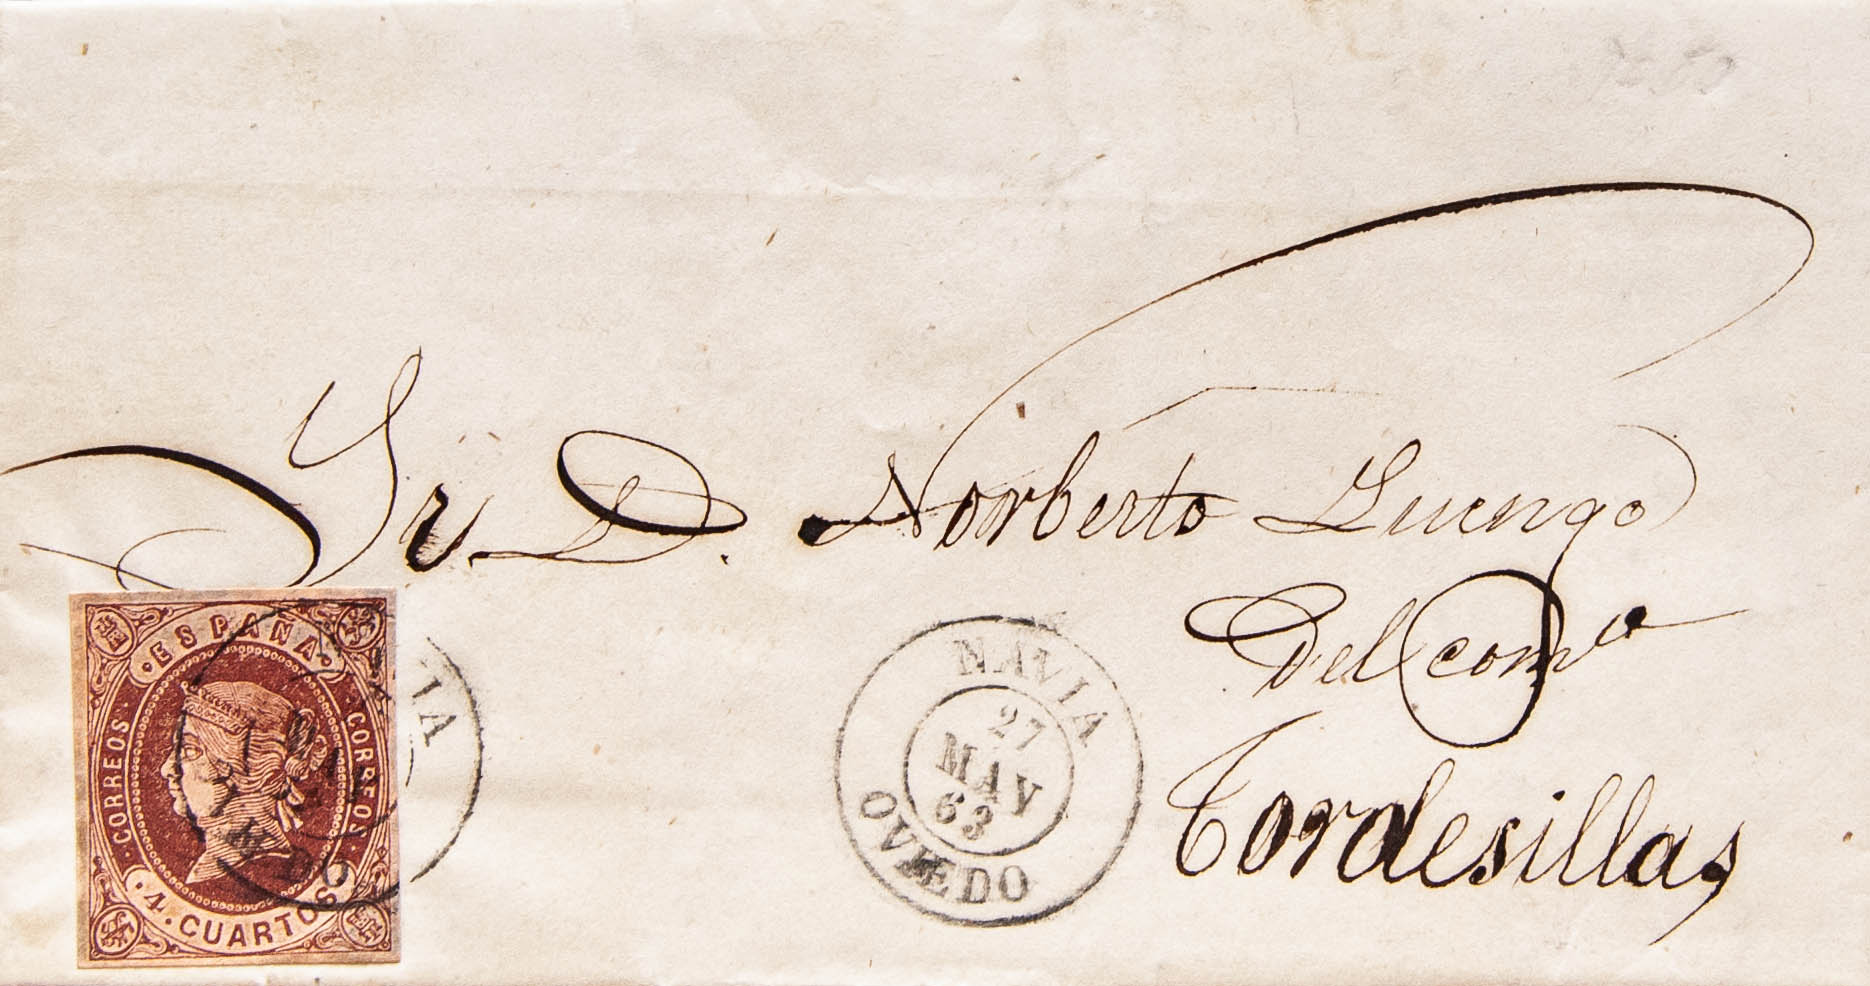 Sr. D. Norberto Luengo
Del comº
Tordesillas
NAVIA
27
MAY
63
OVIEDO
ESPAÑA
CORREOS
CORREOS
4 CUARTOS